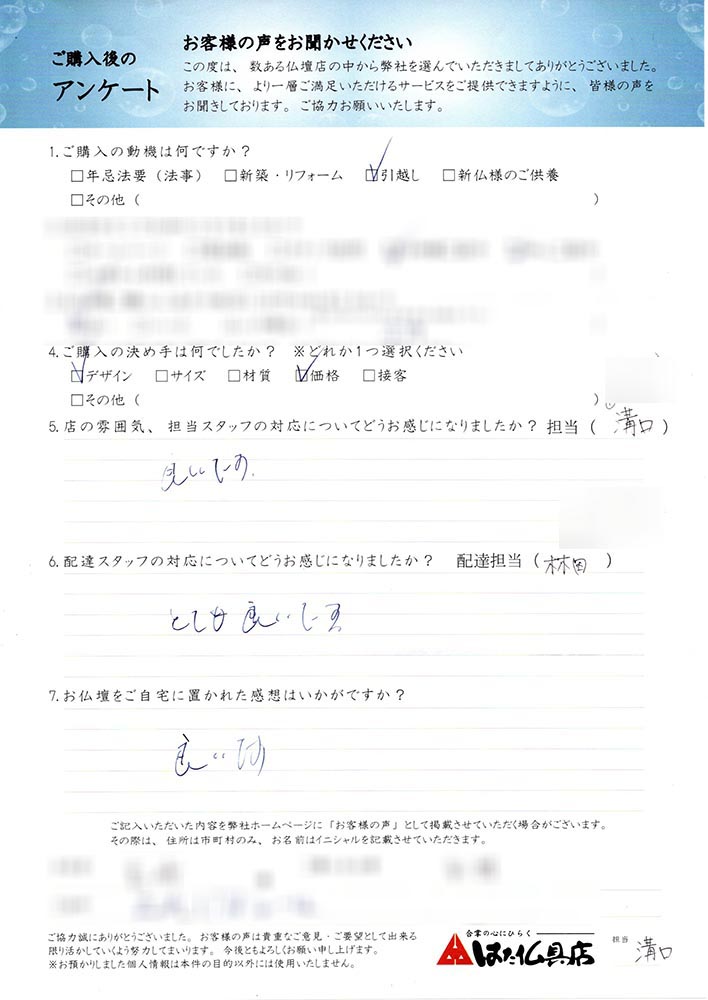 ご購入後の
アンケート
お客様の声をお聞かせください
この度は、数ある仏壇店の中から弊社を選んでいただきましてありがとうございました。
お客様に、より一層ご満足いただけるサービスをご提供できますように、皆様の声を
お聞きしております。ご協力お願いいたします。
1.ご購入の動機は何ですか？
□年忌法要（法事） □新築・リフォーム ☑引越し □新仏様のご供養
□その他（ ）
4.ご購入の決め手は何でしたか？ ※どれか1つ選択ください
☑デザイン □サイズ □材質 ☑価格 □接客
□その他（ ）
5.店の雰囲気、担当スタッフの対応についてどうお感じになりましたか？ 担当（ 溝口 ）
良いです。
6.配達スタッフの対応についてどうお感じになりましたか？ 配達担当（ 林田 ）
とても良いです
7.お仏壇をご自宅に置かれた感想はいかがですか？
良いです
ご記入いただいた内容を弊社ホームページに「お客様の声」として掲載させていただく場合がございます。
その際は、住所は市町村のみ、お名前はイニシャルを記載させていただきます。
ご協力誠にありがとうございました。お客様の声は貴重なご意見・ご要望として出来る
限り活かしていくよう努力してまいります。今後ともよろしくお願い申し上げます。
※お預かりしました個人情報は本件の目的以外には使用いたしません。
合掌の心にひらく
はた仏具店
担当 溝口